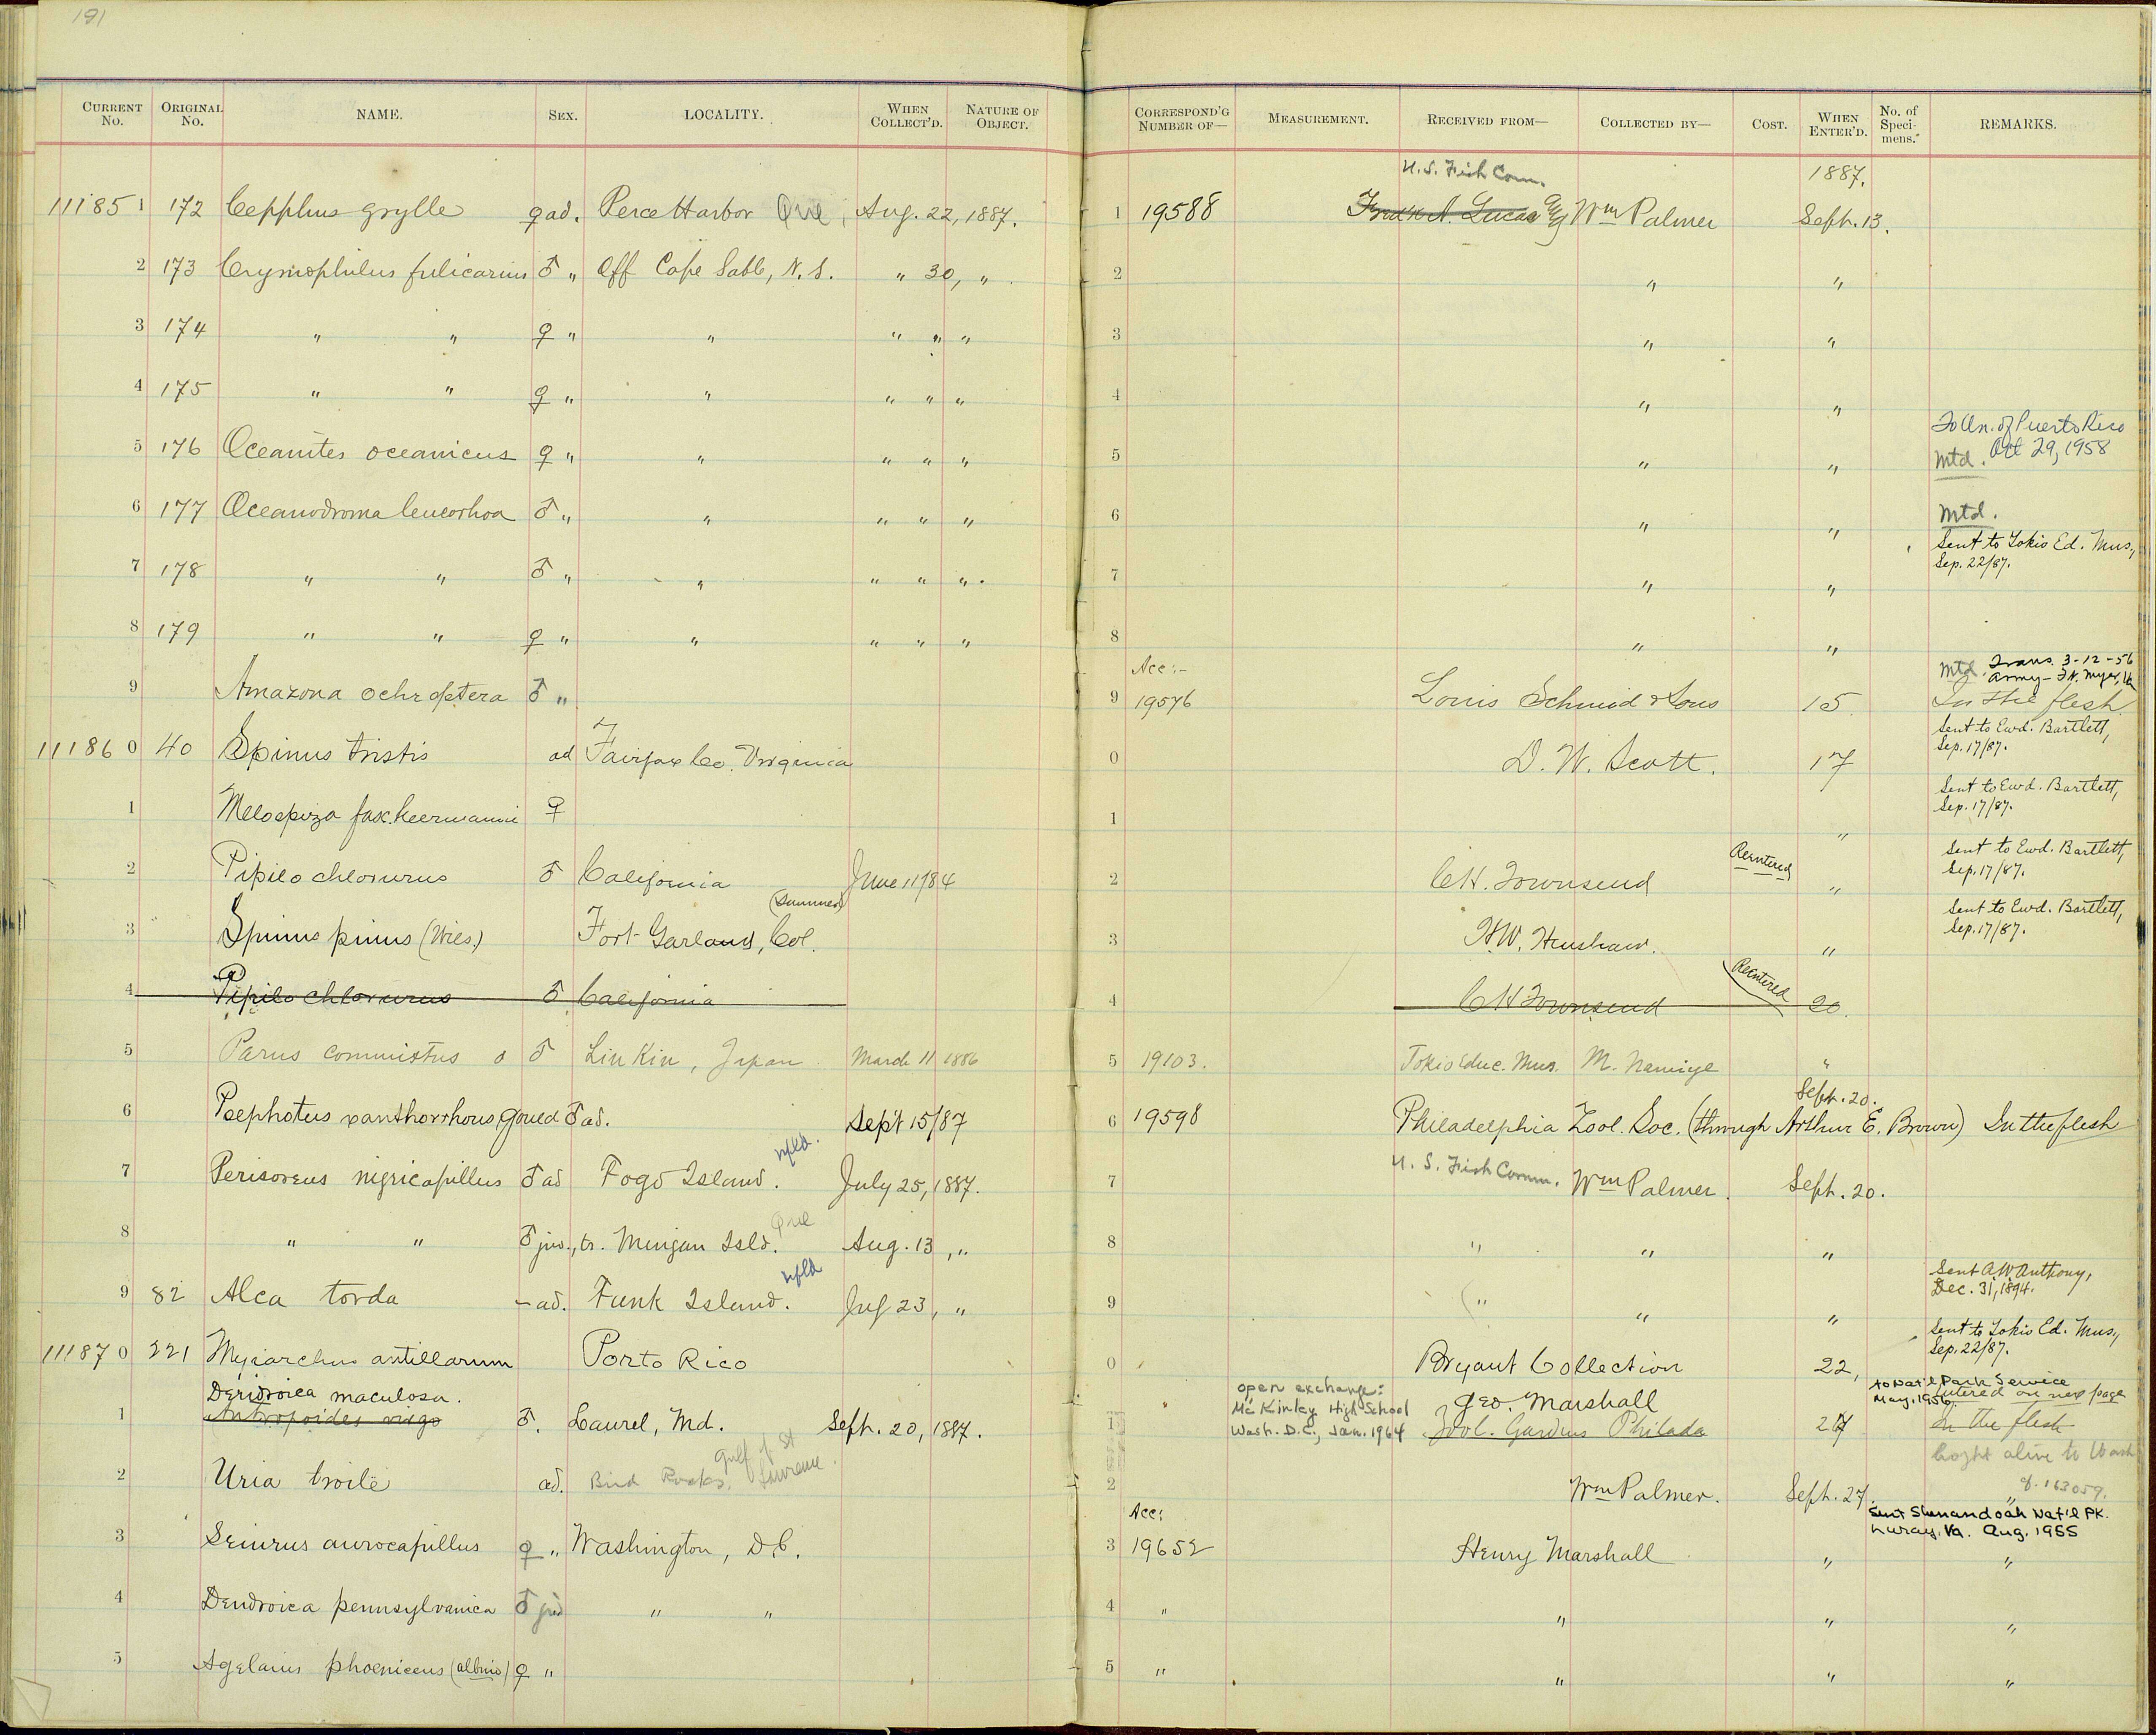 191
CURRENT No. ORIGINAL No. NAME. SEX. LOCALITY. WHEN COLLECT'D. NATURE OF OBJECT. CORRESPOND'G NUMBER OF— MEASUREMENT. RECEIVED FROM— COLLECTED BY— COST. WHEN ENTER'D. No. of Specimens. REMARKS.
U.S. Fish Com. 1887.
111851 172 Cepphus grylle ♀ ad. Perce Harbor Que, Aug. 22, 1887. 1 19588 Fred'k A. Lucas Wm Palmer Sept. 13.
2 173 Crymophilus fulicarius ♂ " Off Cape Sable, N.S. " 30, " 2 " "
3 174 " " ♀ " " " " " 3 " "
4 175 " " ♀ " " " " " 4 " "
To Un. of Puerto Rico
5 176 Oceanites oceanicus ♀ " " " " " 5 " " Mtd. Oct 29, 1958
6 177 Oceanodroma leucorhoa ♂ " " " " " 6 " " Mtd.
Sent to Tokio Ed. Mus.,
7 178 " " ♂ " " " " " 7 " " Sep. 22/87.
8 179 " " ♀ " " " " " 8 " "
Acc:- Mtd. Trans. 3-12-56
Army - Ft. Myer, Va
9 Amazona ochroptera ♂ " 9 19576 Louis Schmid & Sons 15 In the flesh
Sent to Ewd. Bartlett,
111860 40 Spinus tristis ad Fairfax Co. Virginia 0 D. W. Scott. 17 Sep. 17/87.
Sent to Ewd. Bartlett,
1 Melospiza fasc. heermanni ♀ 1 " Sep. 17/87.
Reentered Sent to Ewd. Bartlett,
2 Pipilo chlorurus ♂ California June 11/84 2 C.H. Townsend " Sep. 17/87.
(Summer) Sent to Ewd. Bartlett,
3 Spinus pinus (Wils.) Fort Garland, Col. 3 H.W. Henshaw. " Sep. 17/87.
Reentered
4 Pipilo chlorurus ♂ California 4 C H Townsend 20.
5 Parus commixtus ♂ Liu Kiu, Japan March 11 1886 5 19103. Tokio Educ. Mus. M. Namiye "
Sept. 20.
6 Psephotus xanthorrhous, Gould ♂ ad. Sept 15/87 6 19598 Philadelphia Zool. Soc. (through Arthur E. Brown) In the flesh
Nfld. U.S. Fish Comm.
7 Perisoreus nigricapillus ♂ ad Fogo Island. July 25, 1887. 7 Wm Palmer. Sept. 20.
Que
8 " " ♂ juv., Mingan Isld. Aug. 13, " 8 " " "
Nfld Sent A.W. Anthony,
9 82 Alca torda - ad. Funk Island. July 23, " 9 " " " Dec. 31, 1894.
Sent to Tokio Ed. Mus.,
111870 221 Myiarchus antillarum Porto Rico 0 Bryant Collection 22, Sep. 22/87.
Dendroica maculosa. open exchange: Geo. Marshall to Nat'l Park Service
McKinley High School May, 1956. Entered on next page
1 Antropoides virgo ♂. Laurel, Md. Sept. 20, 1887. 1 Wash. D.C., Jan. 1964 Zool. Gardens Philada 27 In the flesh
Gulf of St bought alive to Wash
2 Uria troile ad. Bird Rocks, Lawrence. 2 Wm Palmer. Sept. 27. 163059.
Acc: Sent Shenandoah Nat'l PK.
Luray, Va. Aug. 1955
3 Seiurus aurocapillus ♀ " Washington, D.C. 3 19652 Henry Marshall " "
4 Dendroica pennsylvanica ♂ juv " " 4 " " " "
5 Agelaius phoeniceus (albino) ♀ " 5 " " " "